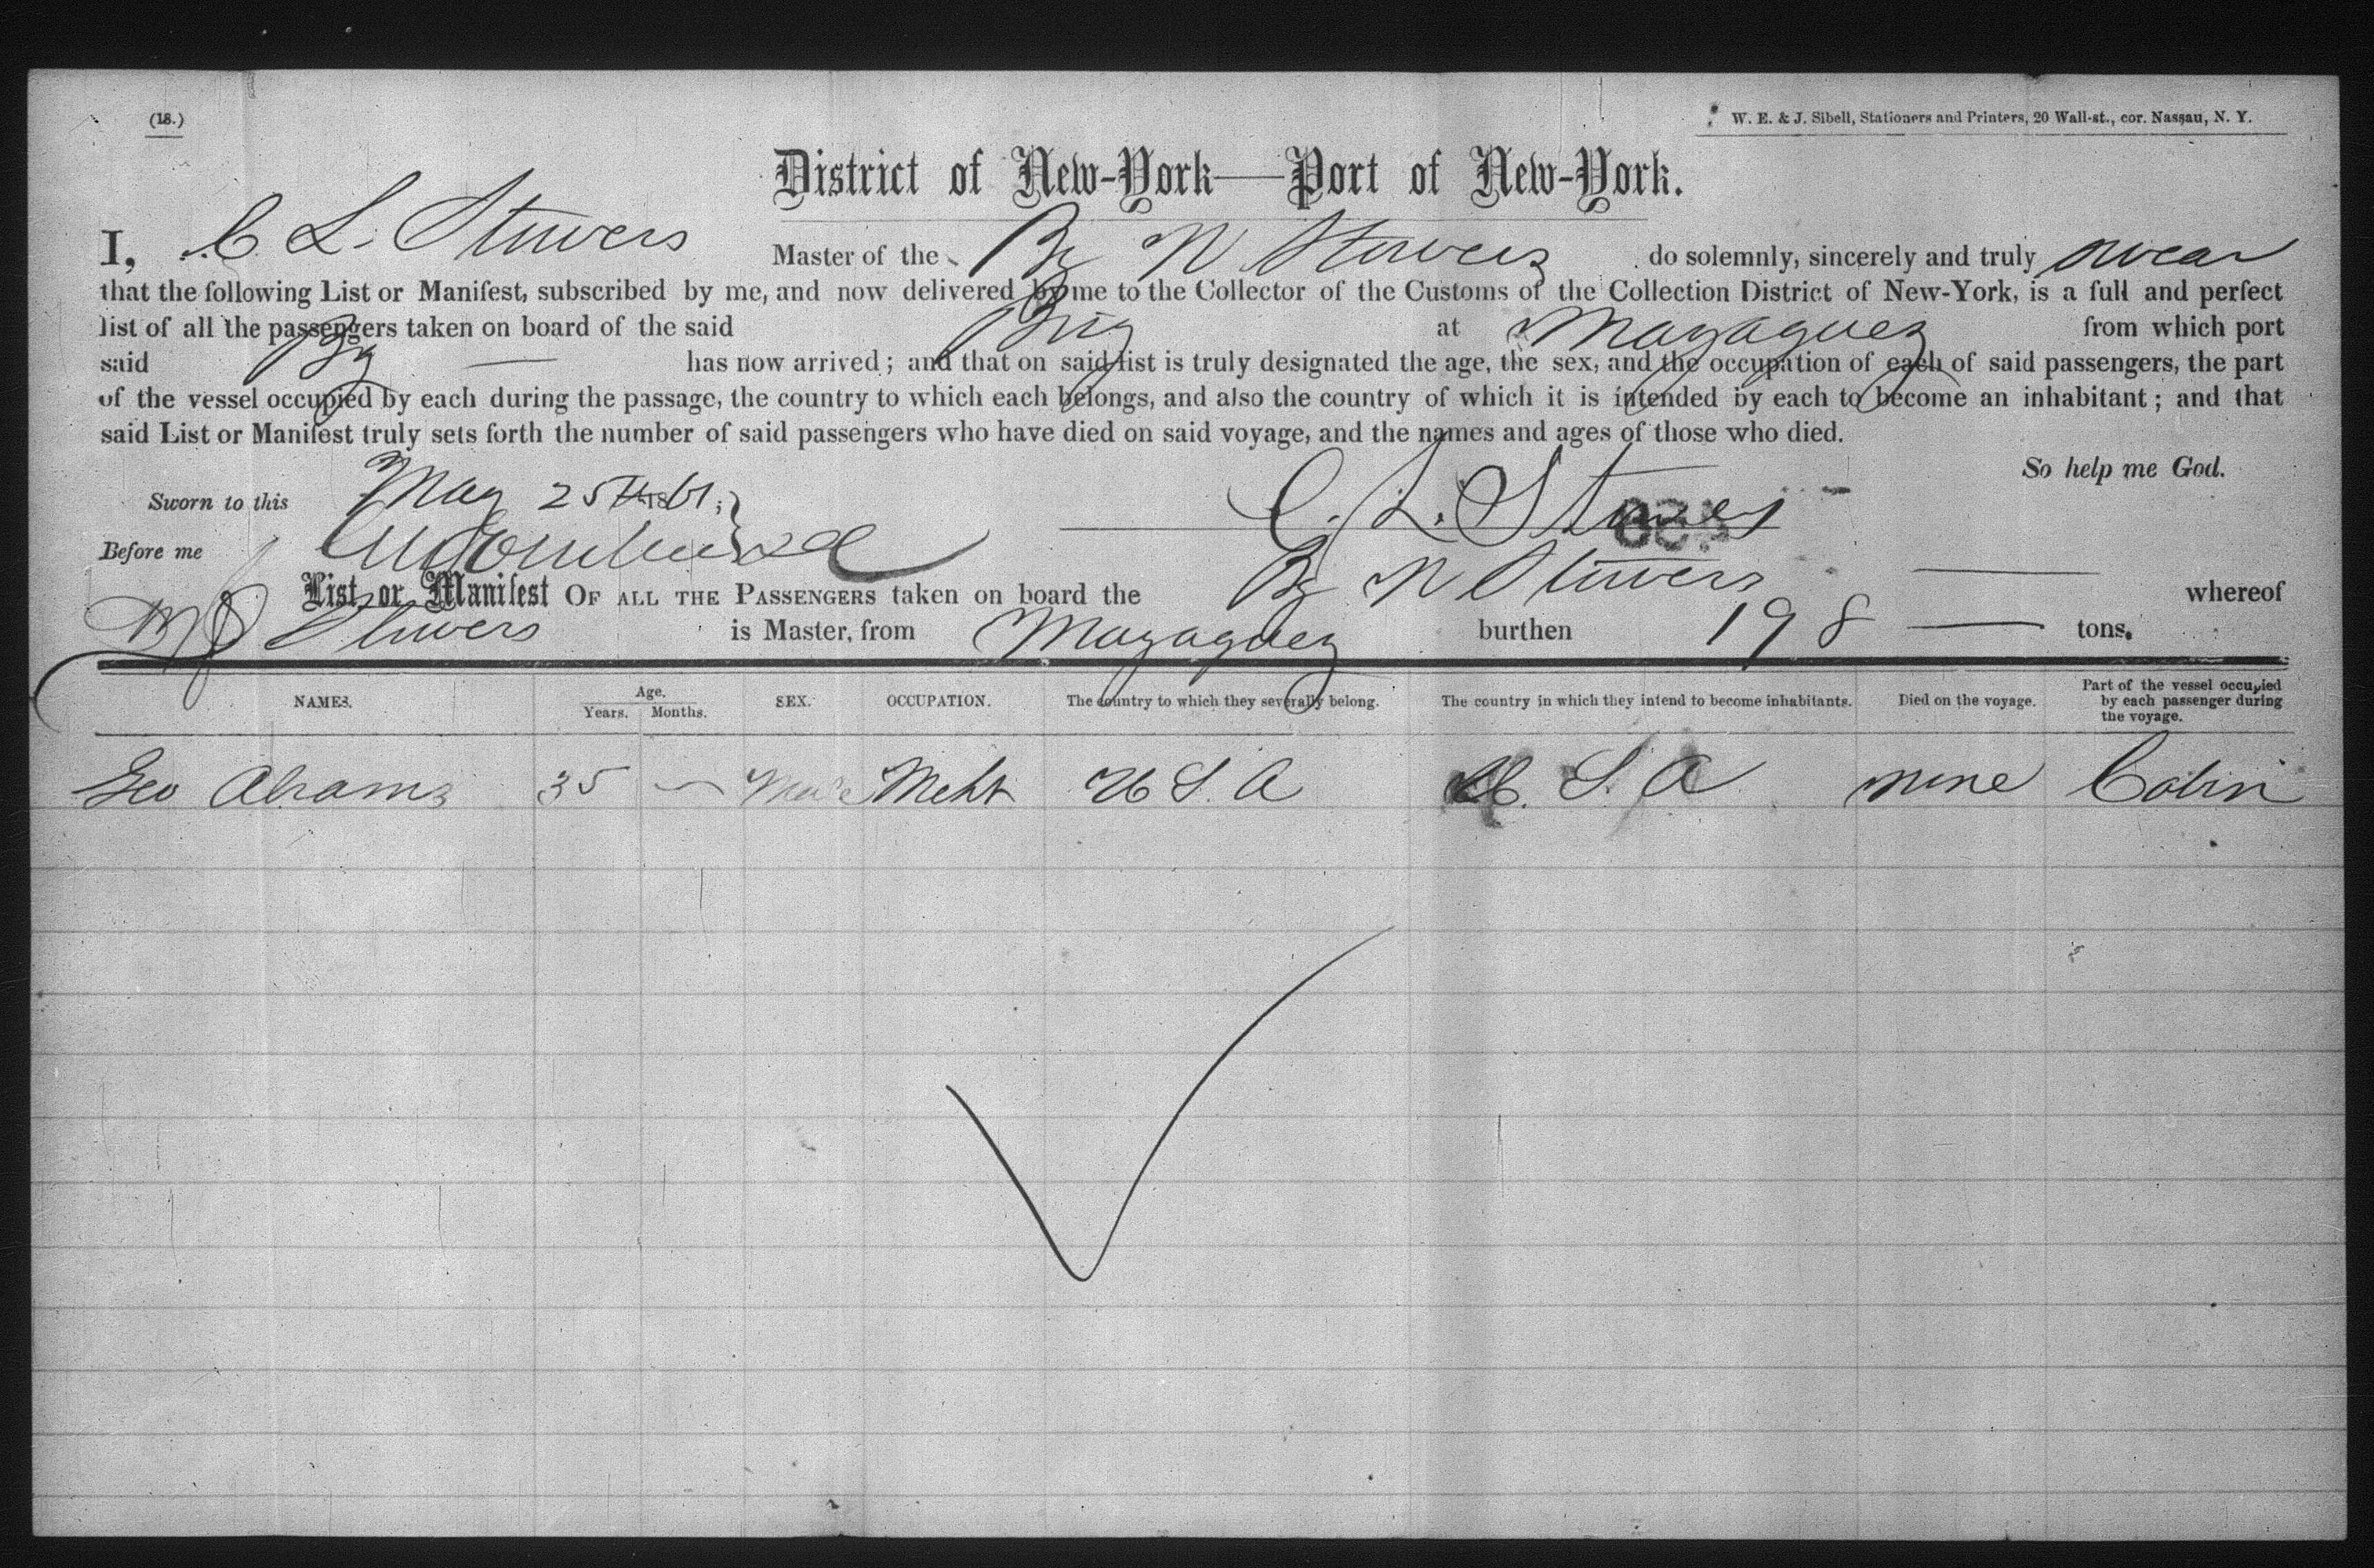 (18.)
W. E. & J. Sibell, Stationers and Printers, 20 Wall-st., cor. Nassau, N. Y.
District of New-York—Port of New-York.
I, C. L. Stowers Master of the Bg N Stowers do solemnly, sincerely and truly swear
that the following List or Manifest, subscribed by me, and now delivered by me to the Collector of the Customs of the Collection District of New-York, is a full and perfect
list of all the passengers taken on board of the said Brig at Mayaguez from which port
said Bg — has now arrived; and that on said list is truly designated the age, the sex, and the occupation of each of said passengers, the part
of the vessel occupied by each during the passage, the country to which each belongs, and also the country of which it is intended by each to become an inhabitant; and that
said List or Manifest truly sets forth the number of said passengers who have died on said voyage, and the names and ages of those who died.
So help me God.
Sworn to this May 25th 1861. C. L. Stowers
Before me
List or Manifest OF ALL THE PASSENGERS taken on board the Bg N Stowers — whereof
Stowers is Master, from Mayaguez burthen 198 — tons.
NAMES. Age. Years. Months. SEX. OCCUPATION. The country to which they severally belong. The country in which they intend to become inhabitants. Died on the voyage. Part of the vessel occupied by each passenger during the voyage.
Geo Abrams 35 — Male Mcht U S. A U. S. A none Cabin